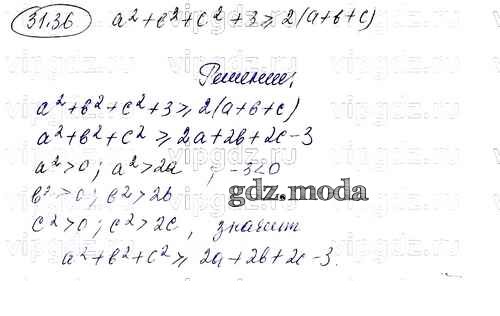 31.36 a²+в²+c²+3≥2(a+в+c)
Решение,
a²+в²+c²+3≥2(a+в+c)
a²+в²+c² ≥ 2a+2в+2c-3
a²>0; a²>2a ; -3<0
в²>0; в²>2в
c²>0; c²>2c, значит
a²+в²+c²≥ 2a+2в+2c-3.
gdz.moda